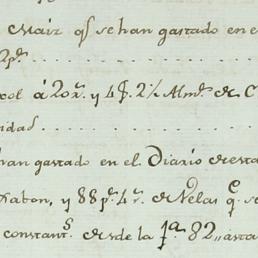 Maiz qᵉ se han gastado en e
2pˢ. . . . . . . . . . . . . . . . .
col à 20 rˢ. y 4 p. 2½ Almˢ. de C
idad . . . . . . . . . . . . .
han gastado en el Diario de esta
Jabon, y 88 pˢ. 4 rˢ. de Velas qᵉ s
constantˢ. desde la 1ª. 82,, asta